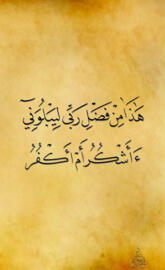 هَٰذَا مِن فَضْلِ رَبِّى لِيَبْلُوَنِىٓ
ءَأَشْكُرُ أَمْ أَكْفُرُ